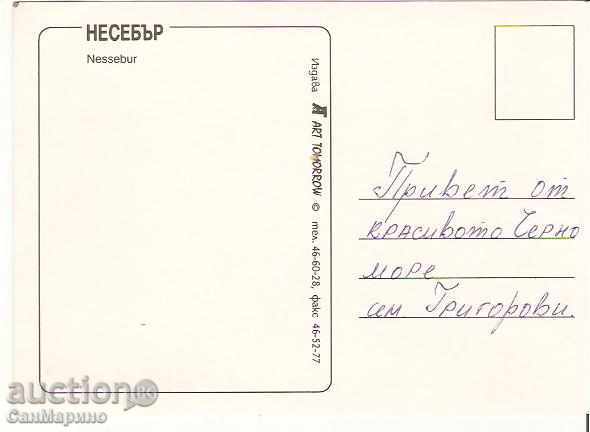 НЕСЕБЪР
Nessebur
Издава ART TOMORROW © тел. 46-60-28, факс 46-52-77
Привет от
красивото Черно
море
сем. Григорови.
auction BG
СанМарино